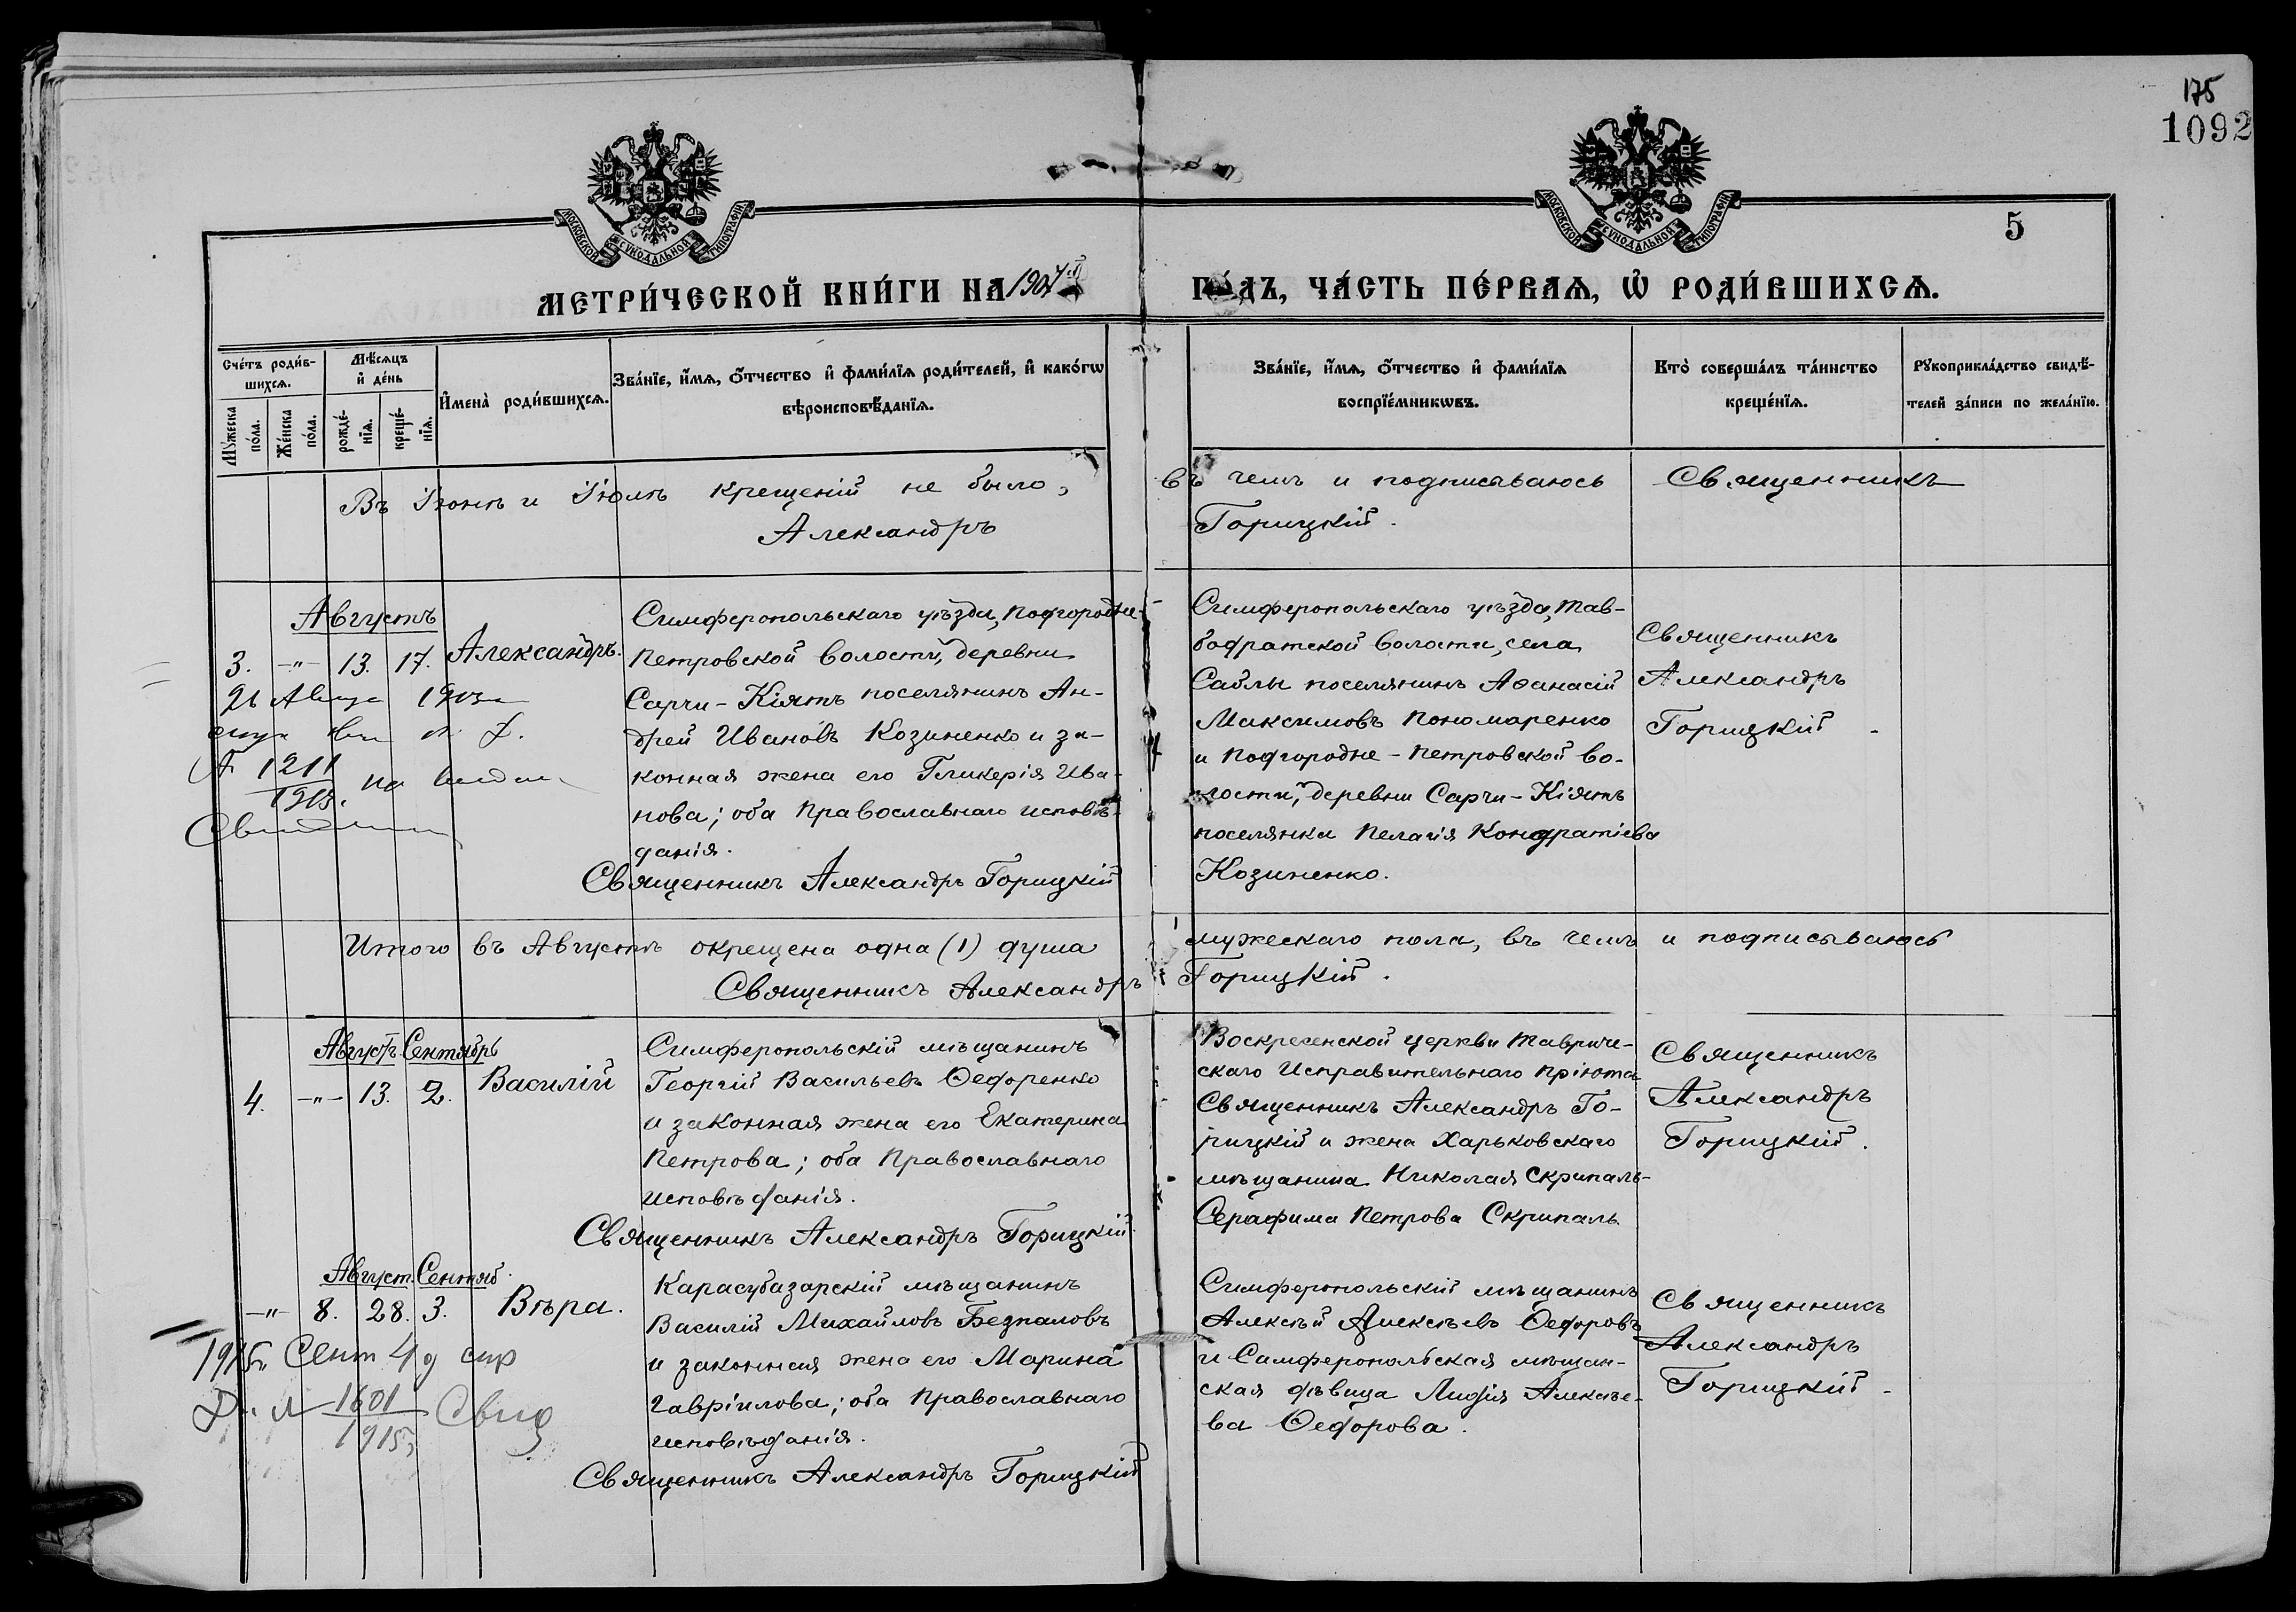 175
1092
МОСКОВСКОЙ СѴНОДАЛЬНОЙ ТИПОГРАФІИ
МОСКОВСКОЙ СѴНОДАЛЬНОЙ ТИПОГРАФІИ
5
МЕТРИ́ЧЕСКОЙ КНИ́ГИ НА 1907й ГО́ДЪ, ЧА́СТЬ ПЕ́РВАѦ, Ѡ҆ РОДИ́ВШИХСѦ.
Сче́тъ роди́в-
шихсѧ.
Мꙋ́жеска по́ла.
Же́нска по́ла.
Мѣ́сѧцъ
и҆ де́нь
рожде́-
нїѧ.
креще́-
нїѧ.
И҆мена̀ роди́вшихсѧ.
Зва́нїе, и҆́мѧ, ѻ҆́тчество и҆ фами́лїѧ роди́телей, и҆ како́гѡ
вѣроисповѣ́данїѧ.
Зва́нїе, и҆́мѧ, ѻ҆́тчество и҆ фами́лїѧ
воспрїе́мникѡвъ.
Кто̀ соверша́лъ та́инство
креще́нїѧ.
Рꙋкоприкла́дство свидѣ́-
телей за́писи по жела́нїю.
Въ Іюнѣ и Іюлѣ крещеній не было, въ чемъ и подписываюсь Священникъ
Александръ Горицкій.
Августъ
3. -"- 13. 17. Александръ.
Симферопольскаго уѣзда, Подгородне-
Петровской волости, деревни
Сарчи-Кіятъ поселянинъ Ан-
дрей Ивановъ Козиненко и за-
конная жена его Гликерія Ива-
нова; оба Православнаго исповѣ-
данія.
Священникъ Александръ Горицкій
Симферопольскаго уѣзда, Тав-
бодратской волости, села
Саблы поселянинъ Аѳанасій
Максимовъ Пономаренко
и Подгородне-Петровской во-
лости, деревни Сарчи-Кіятъ
поселянка Пелагія Кондратіева
Козиненко.
Священникъ
Александръ
Горицкій
1211
Итого въ Августѣ окрещена одна (1) душа мужескаго пола, въ чемъ и подписываюсь
Священникъ Александръ Горицкій.
Августъ Сентябрь
4. -"- 13. 2. Василій
Симферопольскій мѣщанинъ
Георгій Васильевъ Ѳедоренко
и законная жена его Екатерина
Петрова; оба Православнаго
исповѣданія.
Священникъ Александръ Горицкій.
Воскресенской церкви Тавриче-
скаго Исправительнаго Пріюта
Священникъ Александръ Го-
рицкій и жена Харьковскаго
мѣщанина Николая Скрипаль-
Серафима Петрова Скрипаль.
Священникъ
Александръ
Горицкій.
Август. Сентяб.
-"- 8. 28. 3. Вѣра.
Карасубазарскій мѣщанинъ
Василій Михайловъ Безпаловъ
и законная жена его Марина
Гавріилова; оба Православнаго
исповѣданія.
Священникъ Александръ Горицкій
Симферопольскій мѣщанинъ
Алексѣй Алексѣевъ Ѳедоровъ
и Симферопольская мѣщан-
ская дѣвица Лидія Алексѣе-
ва Ѳедорова.
Священникъ
Александръ
Горицкій
1915г. Сент 4 д
1601
1915 Свид